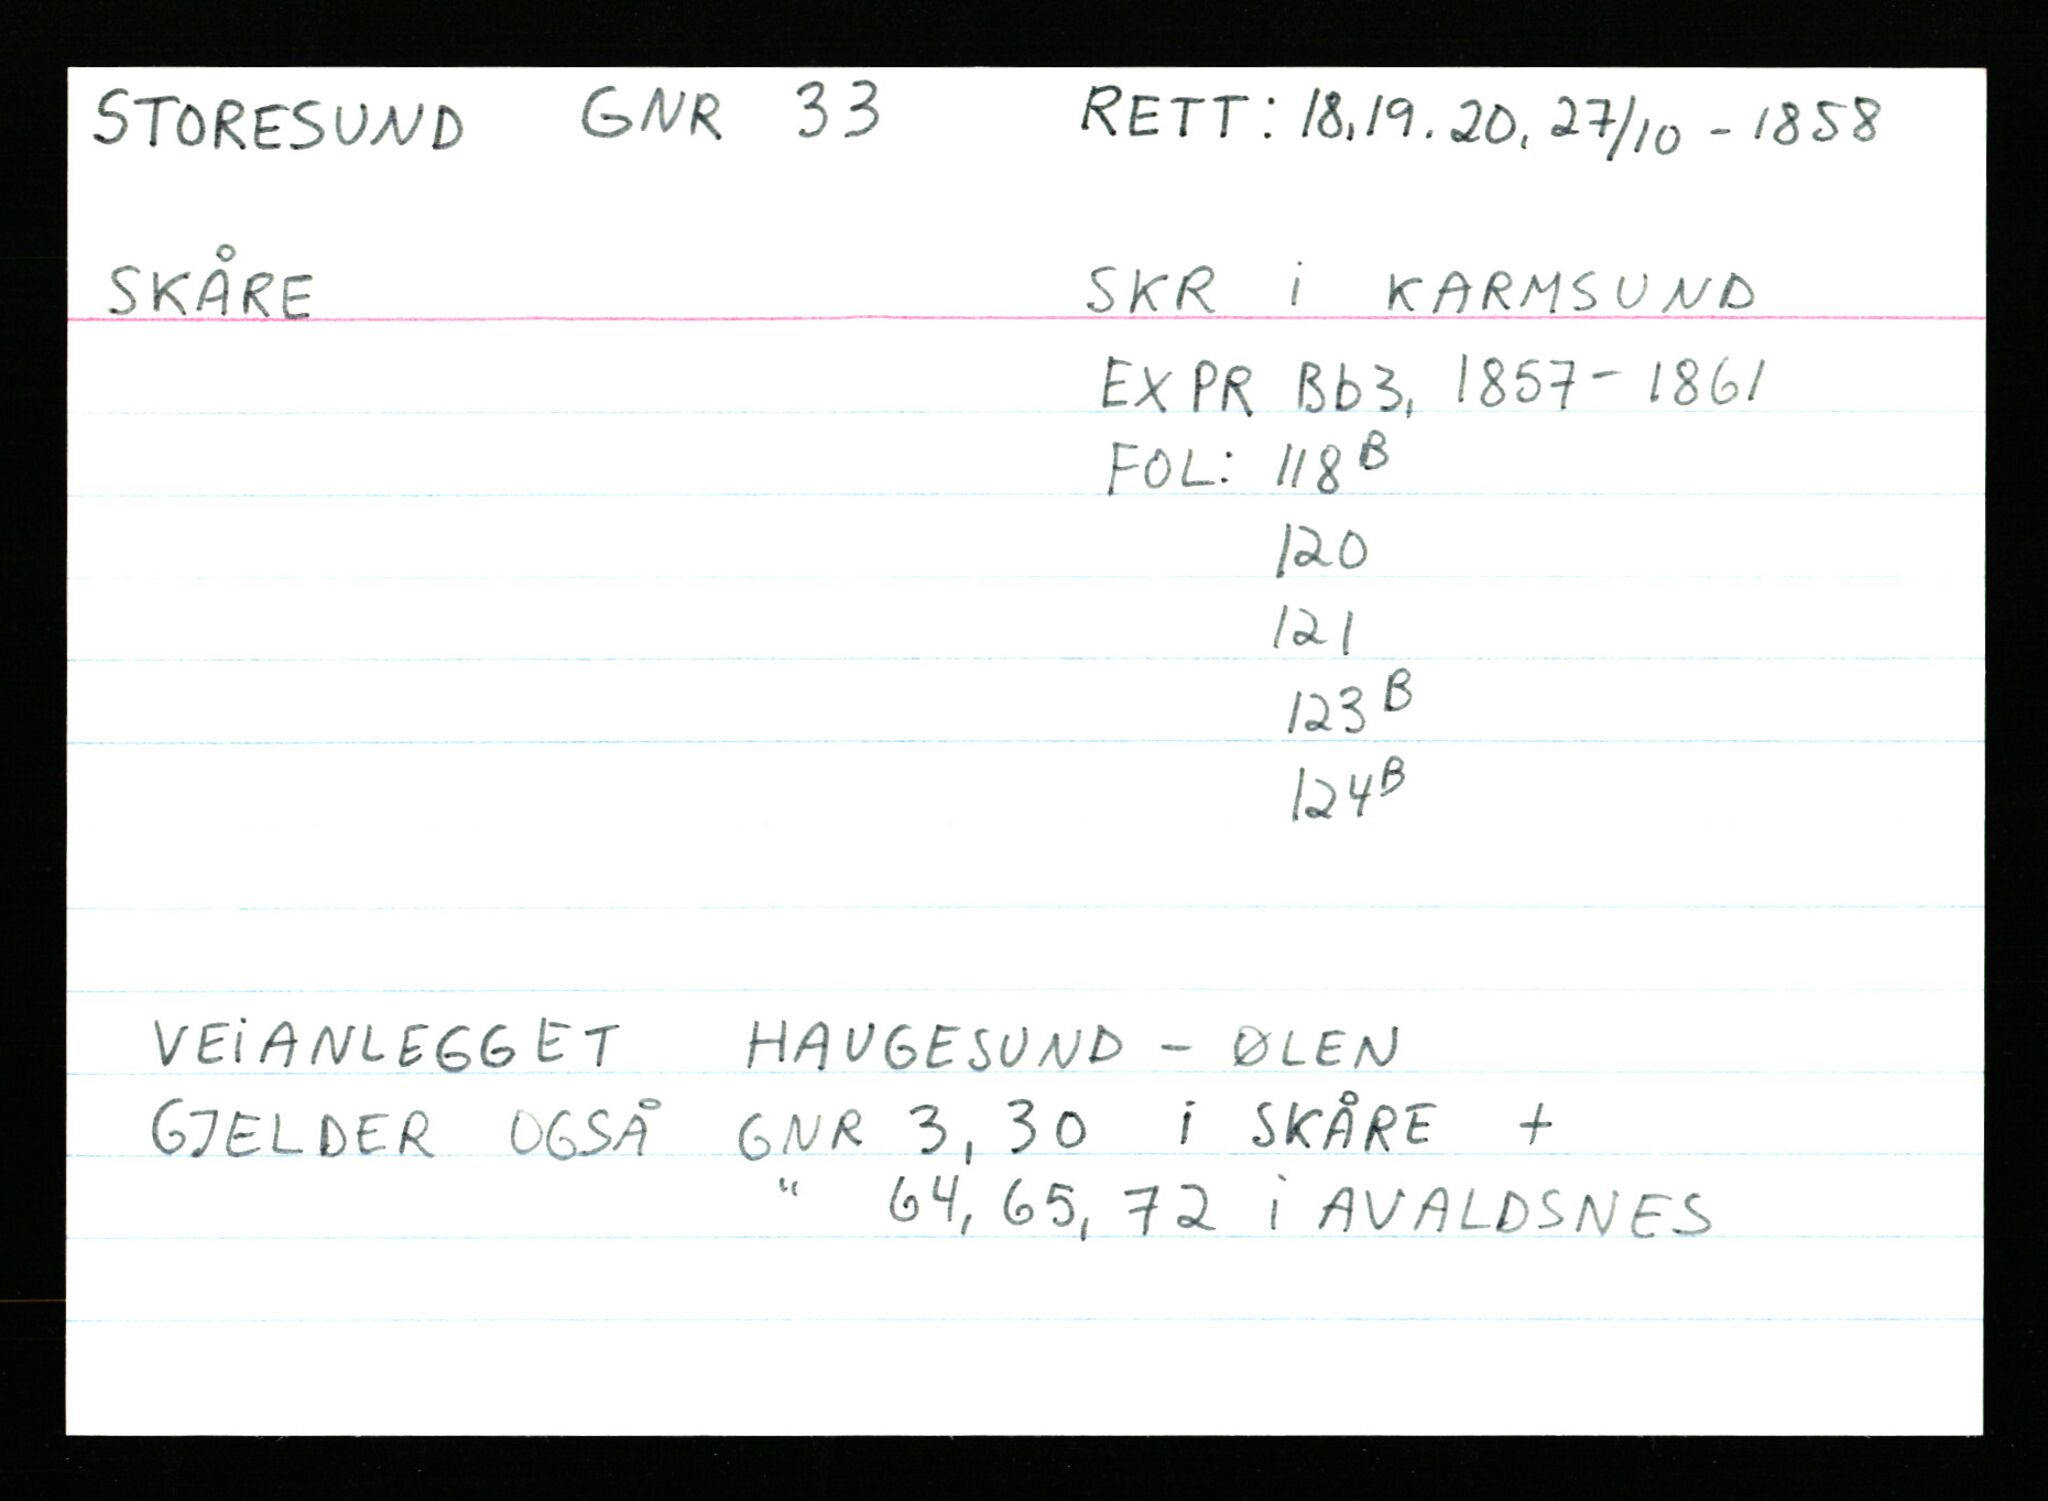 STORESUND GNR 33 RETT: 18,19.20, 27/10 - 1858
SKÅRE SKR i KARMSUND
EXPR Bb3, 1857 - 1861
FOL: 118 B
120
121
123 B
124 B
VEiANLEGGET HAUGESUND - ØLEN
GJELDER OGSÅ GNR 3, 30 i SKÅRE +
" 64, 65, 72 i AVALDSNES